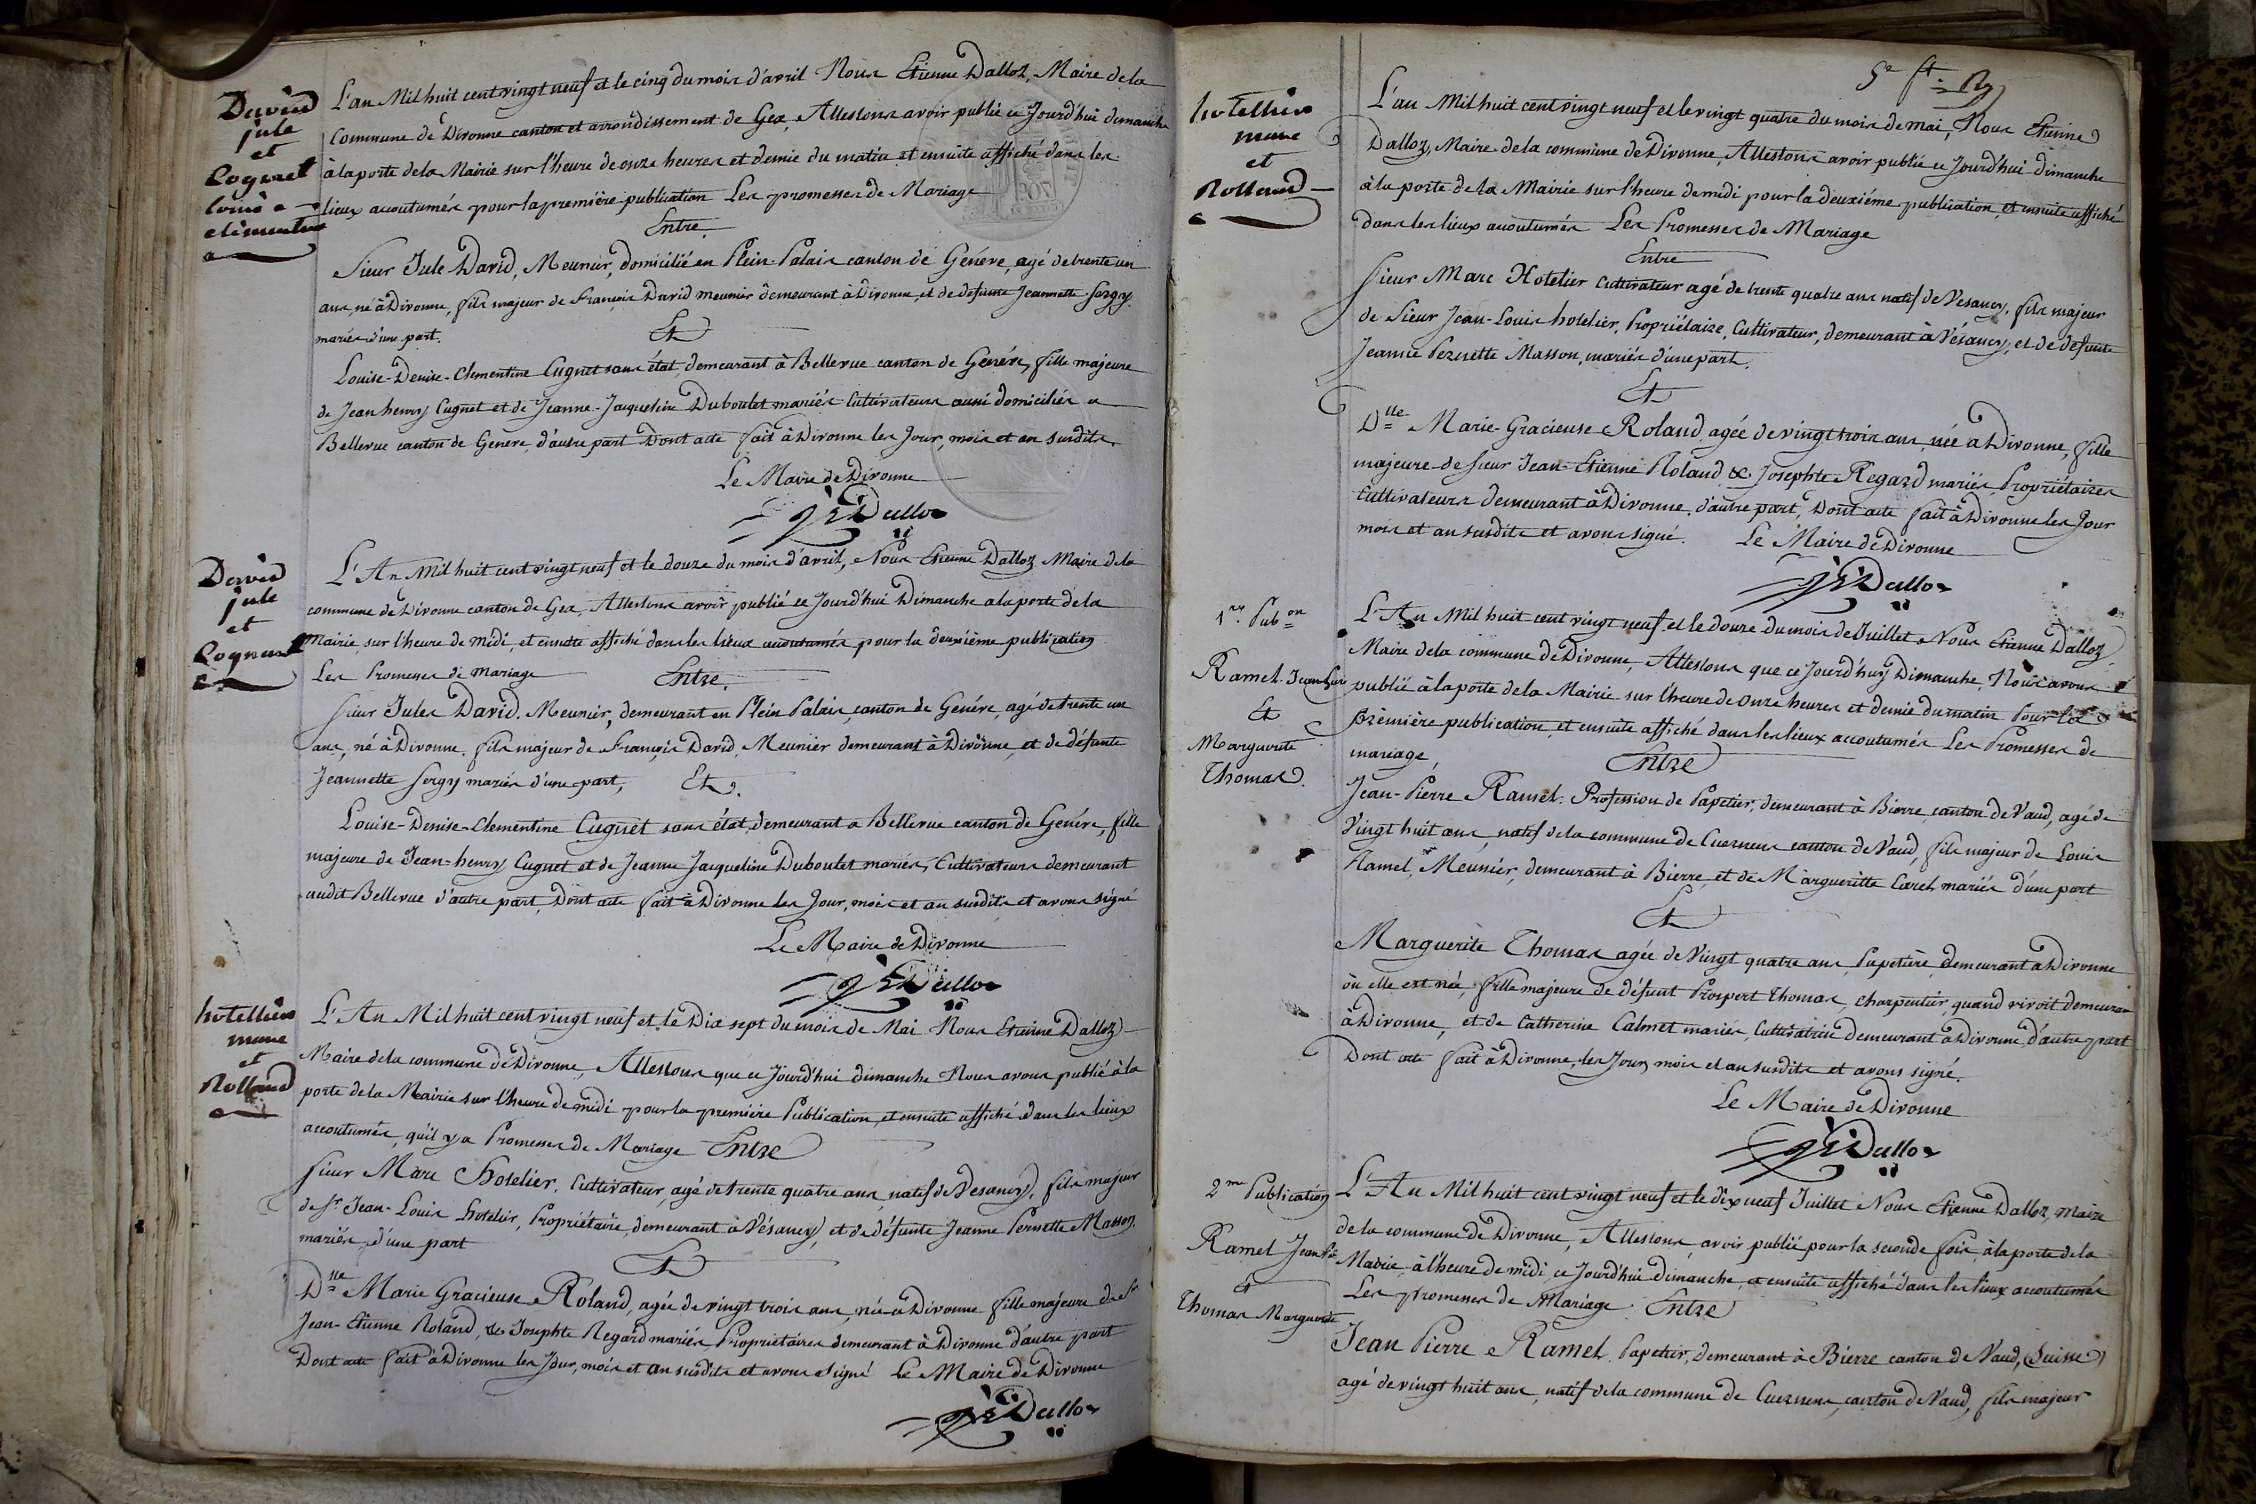 David
jule
et
Cogniet
loise
clémentine
L'an Mil huit cent vingt neuf et le cinq du mois d'avril Nous Etienne Dalloz, Maire de la
Commune de Divonne canton et arrondissement de Gex, Attestons avoir publié ce Jourd'hui dimanche
à la porte de la Mairie sur l'heure de onze heures et demie du matin et ensuite affiché dans les
lieux accoutumés pour la première publication Les promesses de Mariage
Entre
Sieur Jule David, Meunier, domicilié en Plein-Palais canton de Genève, agé de trente un
ans, né à Divonne, fils majeur de François David meunier demeurant à Divonne, et de défunte Jeannette Sergy
mariés d'une part.
Et
Louise-Denise-Clementine Cugnet sans état, demeurant à Bellevue canton de Genève, fille majeure
de Jean henry Cugnet et de Jeanne-Jaqueline Duboulet mariés Cultivateurs aussi domiciliés a
Bellevue canton de Geneve, d'autre part Dont acte fait à Divonne les Jour, mois et an susdits
Le Maire de Divonne
Dalloz
David
jule
et
Cogniet
L'An Mil huit cent vingt neuf et le douze du mois d'avril, Nous Etienne Dalloz Maire de la
commune de Divonne canton de Gex, Attestons avoir publié ce Jourd'hui Dimanche a la porte de la
Mairie sur l'heure de midi, et ensuite affiché dans les lieux accoutumés pour la deuxième publication
Les Promesses de Mariage Entre.
Sieur Jules David, Meunier, demeurant en Plein Palais, canton de Genève, agé de trente un
ans, né à Divonne, fils majeur de François David, Meunier demeurant à Divonne, et de défunte
Jeannette Sergy mariés d'une part, Et.
Louise-Denise-Clementine Cugnet sans état, demeurant a Bellevue canton de Genève, fille
majeure de Jean-henry Cugnet et de Jeanne Jacqueline Duboulet mariés, Cultivateurs demeurant
audit Bellevue d'autre part, Dont acte fait à Divonne les Jour, mois et an susdits et avons signé
Le Maire de Divonne
Dalloz
hotellier
marc
et
Rolland
L'An Mil huit cent vingt neuf et le Dix sept du mois de Mai Nous Etienne Dalloz
Maire de la commune de Divonne, Attestons que ce Jourd'hui dimanche Nous avons publié à la
porte de la Mairie sur l'heure de midi pour la première Publication, et ensuite affiché dans les lieux
accoutumés, qu'il y a Promesses de Mariage Entre
Sieur Marc Hotelier, Cultivateur, agé de trente quatre ans, natif de Vesancy, fils majeur
de Sr Jean-Louis hotelier, Propriétaire, demeurant à Vésancy, et de défunte Jeanne Pernette Masson
mariés, d'une part
Et
Dlle Marie Gracieuse Roland, agée de vingt trois ans, née à Divonne fille majeure de Sr
Jean-Etienne Roland, & Josephte Regard mariés Propriétaires demeurant à Divonne d'autre part
Dont acte fait à Divonne les Jour, mois et an susdits et avons signé Le Maire de Divonne
Dalloz
hotellier
marc
et
Rolland
L'an Mil huit cent vingt neuf et le vingt quatre du mois de mai, Nous Etienne
Dalloz, Maire de la commune de Divonne, Attestons avoir publié ce Jourd'hui dimanche
à la porte de la Mairie sur l'heure de midi pour la deuxième publication, et ensuite affiché
dans les lieux accoutumés Les Promesses de Mariage
Entre
Sieur Marc Hotelier Cultivateur agé de trente quatre ans natif de Vesancy, fils majeur
de Sieur Jean-Louis hotelier, Propriétaire, Cultivateur, demeurant à Vésancy, et de défunte
Jeanne Pernette Masson, mariés d'une part.
Et
Dlle Marie-Gracieuse Roland, agée de vingt trois ans, née à Divonne, fille
majeure de Sieur Jean-Etienne Roland & Josephte Regard mariés, Propriétaires
Cultivateurs demeurant à Divonne, d'autre part, Dont acte fait à Divonne les Jour
mois et an susdits et avons signé. Le Maire de Divonne
Dalloz
1re Pubon
Ramel Jean
Et
Marguerite
Thomas.
L'An Mil huit cent vingt neuf et le douze du mois de Juillet Nous Etienne Dalloz
Maire de la commune de Divonne, Attestons que ce Jourd'huy Dimanche, Nous avons
publié à la porte de la Mairie sur l'heure de onze heures et demie du matin Pour la
première publication, et ensuite affiché dans les lieux accoutumés Les Promesses de
mariage, Entre
Jean-Pierre Ramel, Profession de Papetier, demeurant à Bierre, canton de Vaud, agé de
Vingt huit ans, natif de la commune de Cuarnens canton de Vaud, fils majeur de Louis
Ramel, Meunier, demeurant à Bierre, et de Margueritte mariés d'une part
Et
Marguerite Thomas agée de Vingt quatre ans, Papetière, demeurant à Divonne
où elle est née, fille majeure de défunt Prospert Thomas, charpentier, quand vivoit demeurant
à Divonne, et de Catherine Calmet mariés, Cultivatrice demeurant à Divonne, d'autre part
Dont acte fait à Divonne, les Jour, mois et an susdits et avons signé.
Le Maire de Divonne
Dalloz
2me Publication
Ramel Jean
Et
Thomas Marguerite
L'An Mil huit cent vingt neuf et le dix neuf Juillet Nous Etienne Dalloz, Maire
de la commune de Divonne, Attestons avoir publié pour la seconde fois, à la porte de la
Mairie, à l'heure de midi, ce Jourd'hui dimanche, et ensuite affiché dans les lieux accoutumés
Les promesses de Mariage. Entre
Jean Pierre Ramel, Papetier, demeurant à Bierre canton de Vaud, (Suisse)
agé de vingt huit ans, natif de la commune de Cuarnens, canton de Vaud, fils majeur